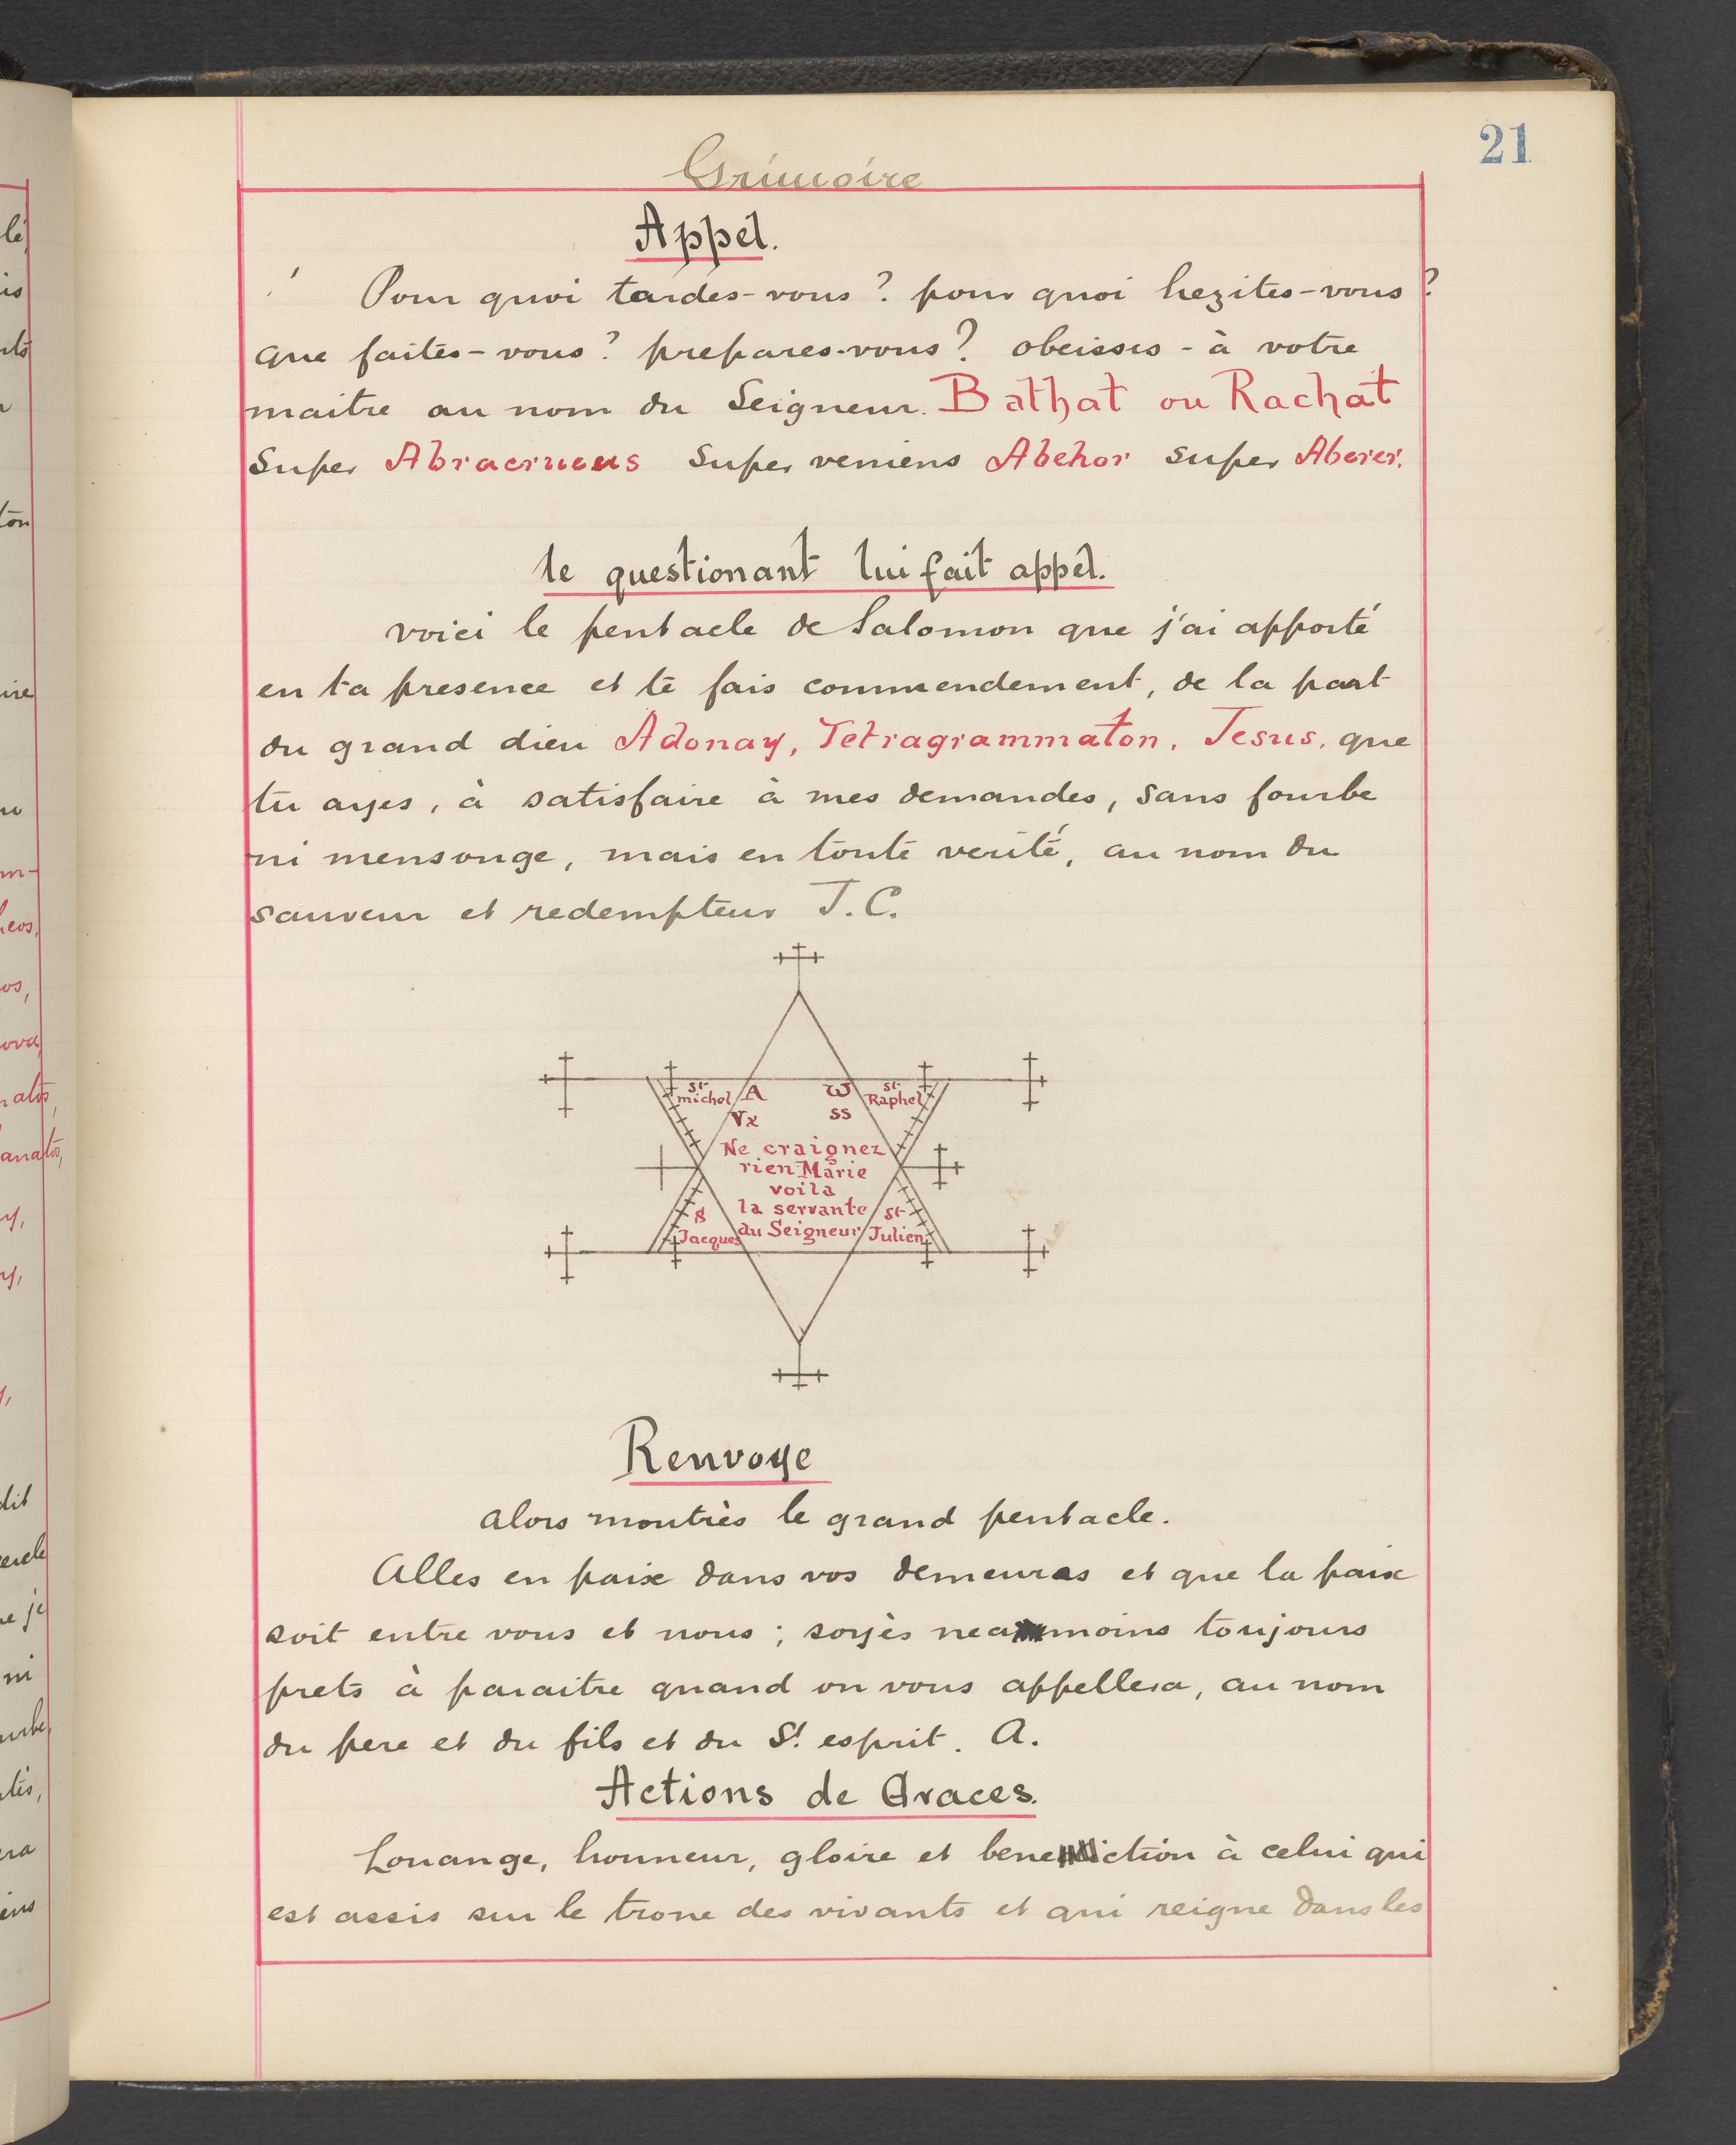 21
Grimoire
Appel.
Pour quoi tardes-vous? pour quoi hezites-vous?
que faites-vous? prepares-vous? obeisses-à votre
maitre au nom du Seigneur. Bathat ou Rachat
super super veniens Abehor super Aberer.
le questionant lui fait appel.
voici le pentacle de Salomon que j'ai apporté
en ta presence et te fais commendement, de la part
du grand dieu Adonay, Tetragrammaton. Jesus. que
tu ayes, à satisfaire à mes demandes, sans fourbe
ni mensonge, mais en toute verité, au nom du
sauveur et redempteur J.C.
st michel A ω st Raphel
Vx ss
Ne craignez
rien Marie
voila
la servante
du Seigneur
S Jacques st Julien
Renvoye
alors montrès le grand pentacle.
Alles en paix dans vos demeures et que la paix
soit entre vous et nous; soyès neamoins toujours
prets à paraitre quand on vous appellera, au nom
du pere et du fils et du St. esprit. A.
Actions de Graces.
Louange, honneur, gloire et benediction à celui qui
est assis sur le trone des vivants et qui reigne dans les